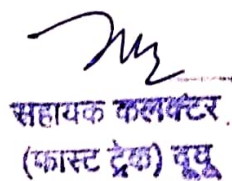 सहायक कलक्टर
(फास्ट ट्रेक) चूरू